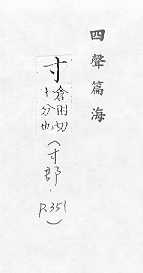 四聲篇海
寸
倉困切
十分也
(寸部.
P.351)